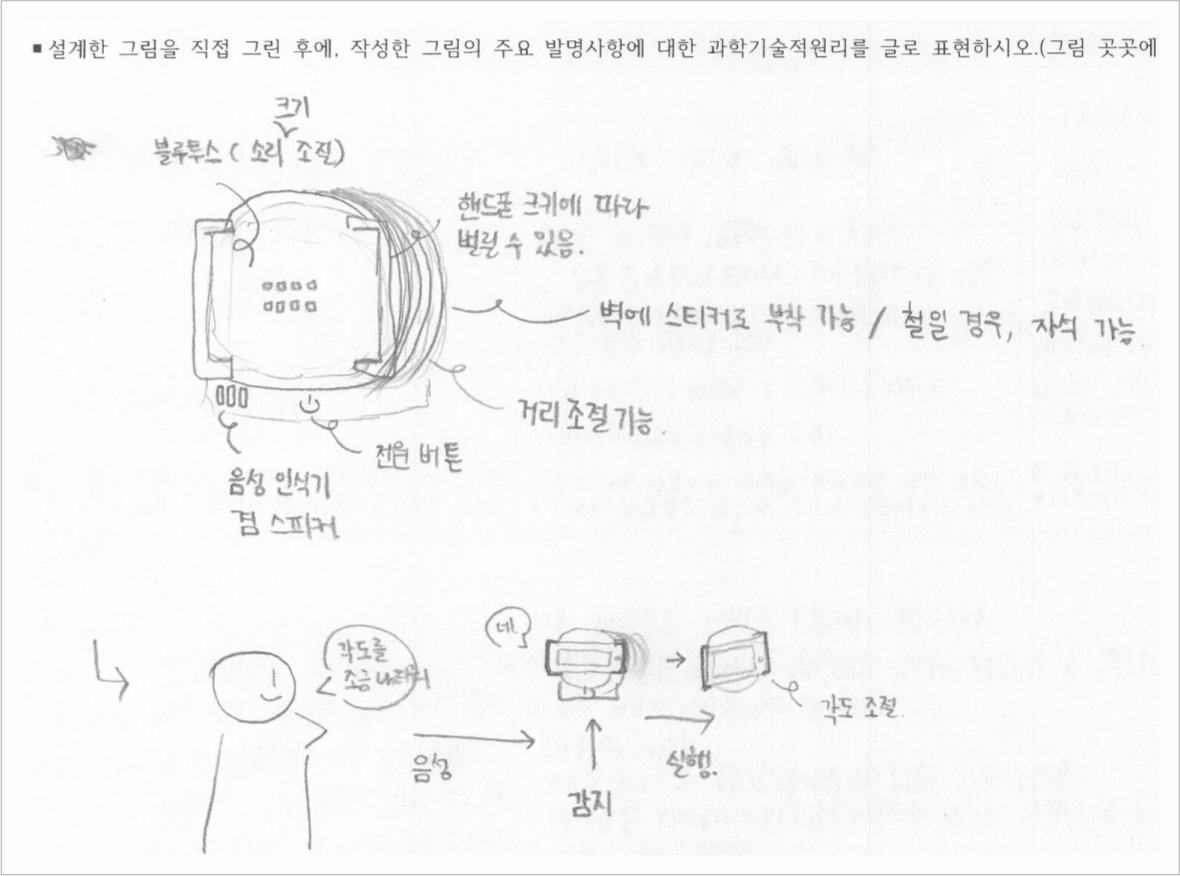 ▪ 설계한 그림을 직접 그린 후에, 작성한 그림의 주요 발명사항에 대한 과학기술적원리를 글로 표현하시오.(그림 곳곳에
크기
블루투스 ( 소리 조절)
핸드폰 크귀에 따라
벌릴 수 있음.
벽에 스티커로 부착 가능 / 철일 경우, 자석 가능
거리 조절 기능.
전원 버튼
음성 인식기
겸 스피커
각도를
조금
네.
각도 조절.
음성
실행.
감지